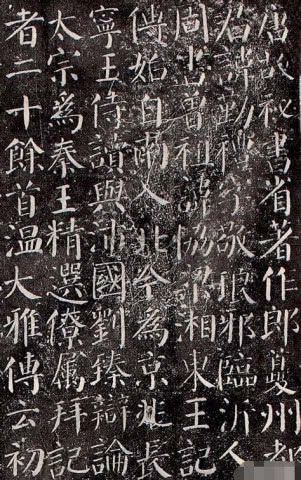 唐故祕書省著作郎夔州都
君諱勤禮字敬琅邪臨沂人
周書曾祖諱協梁湘東王記
傳始自南入北今爲京兆長
寧王侍讀與沛國劉臻辯論
太宗爲秦王精選僚属拜記
者二十餘首溫大雅傳云初